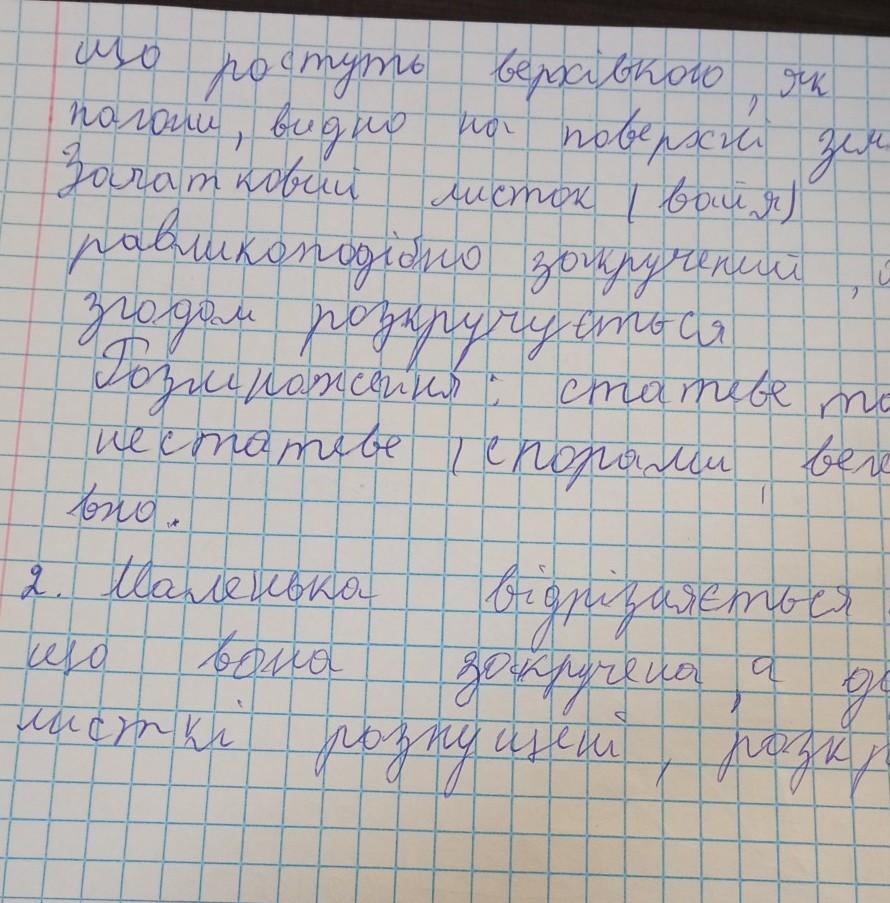 що ростуть верхівкою, як
пагони, видно на поверхні зем
Зачатковий листок (вайя)
равликоподібно закручений,
згодом розкручується
Розмноження: статеве та
нестатеве (спорами, веге
вно.
2. Маленька відрізняється
що вона закручена, а до
листкі розпущені, розкр